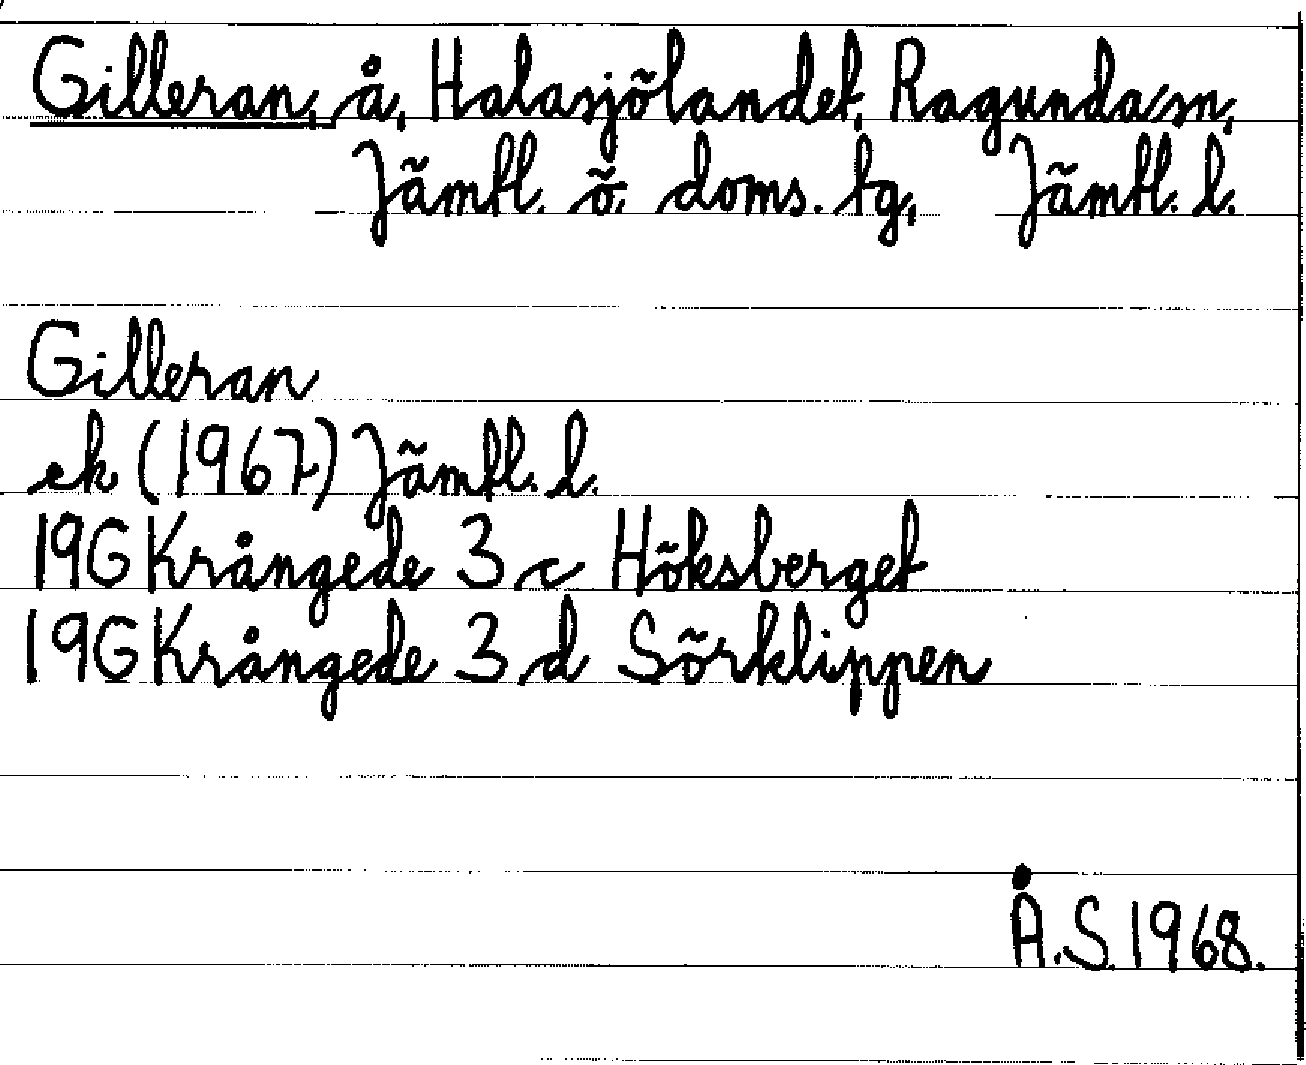 Gilleran, å, Halasjölandet, Ragunda sn,
Jämtl. ö. doms. tg, Jämtl. l.
Gilleran
ek (1967) Jämtl. l.
19G Krångede 3 c Höksberget
19G Krångede 3 d Sörklippen
Å.S. 1968.